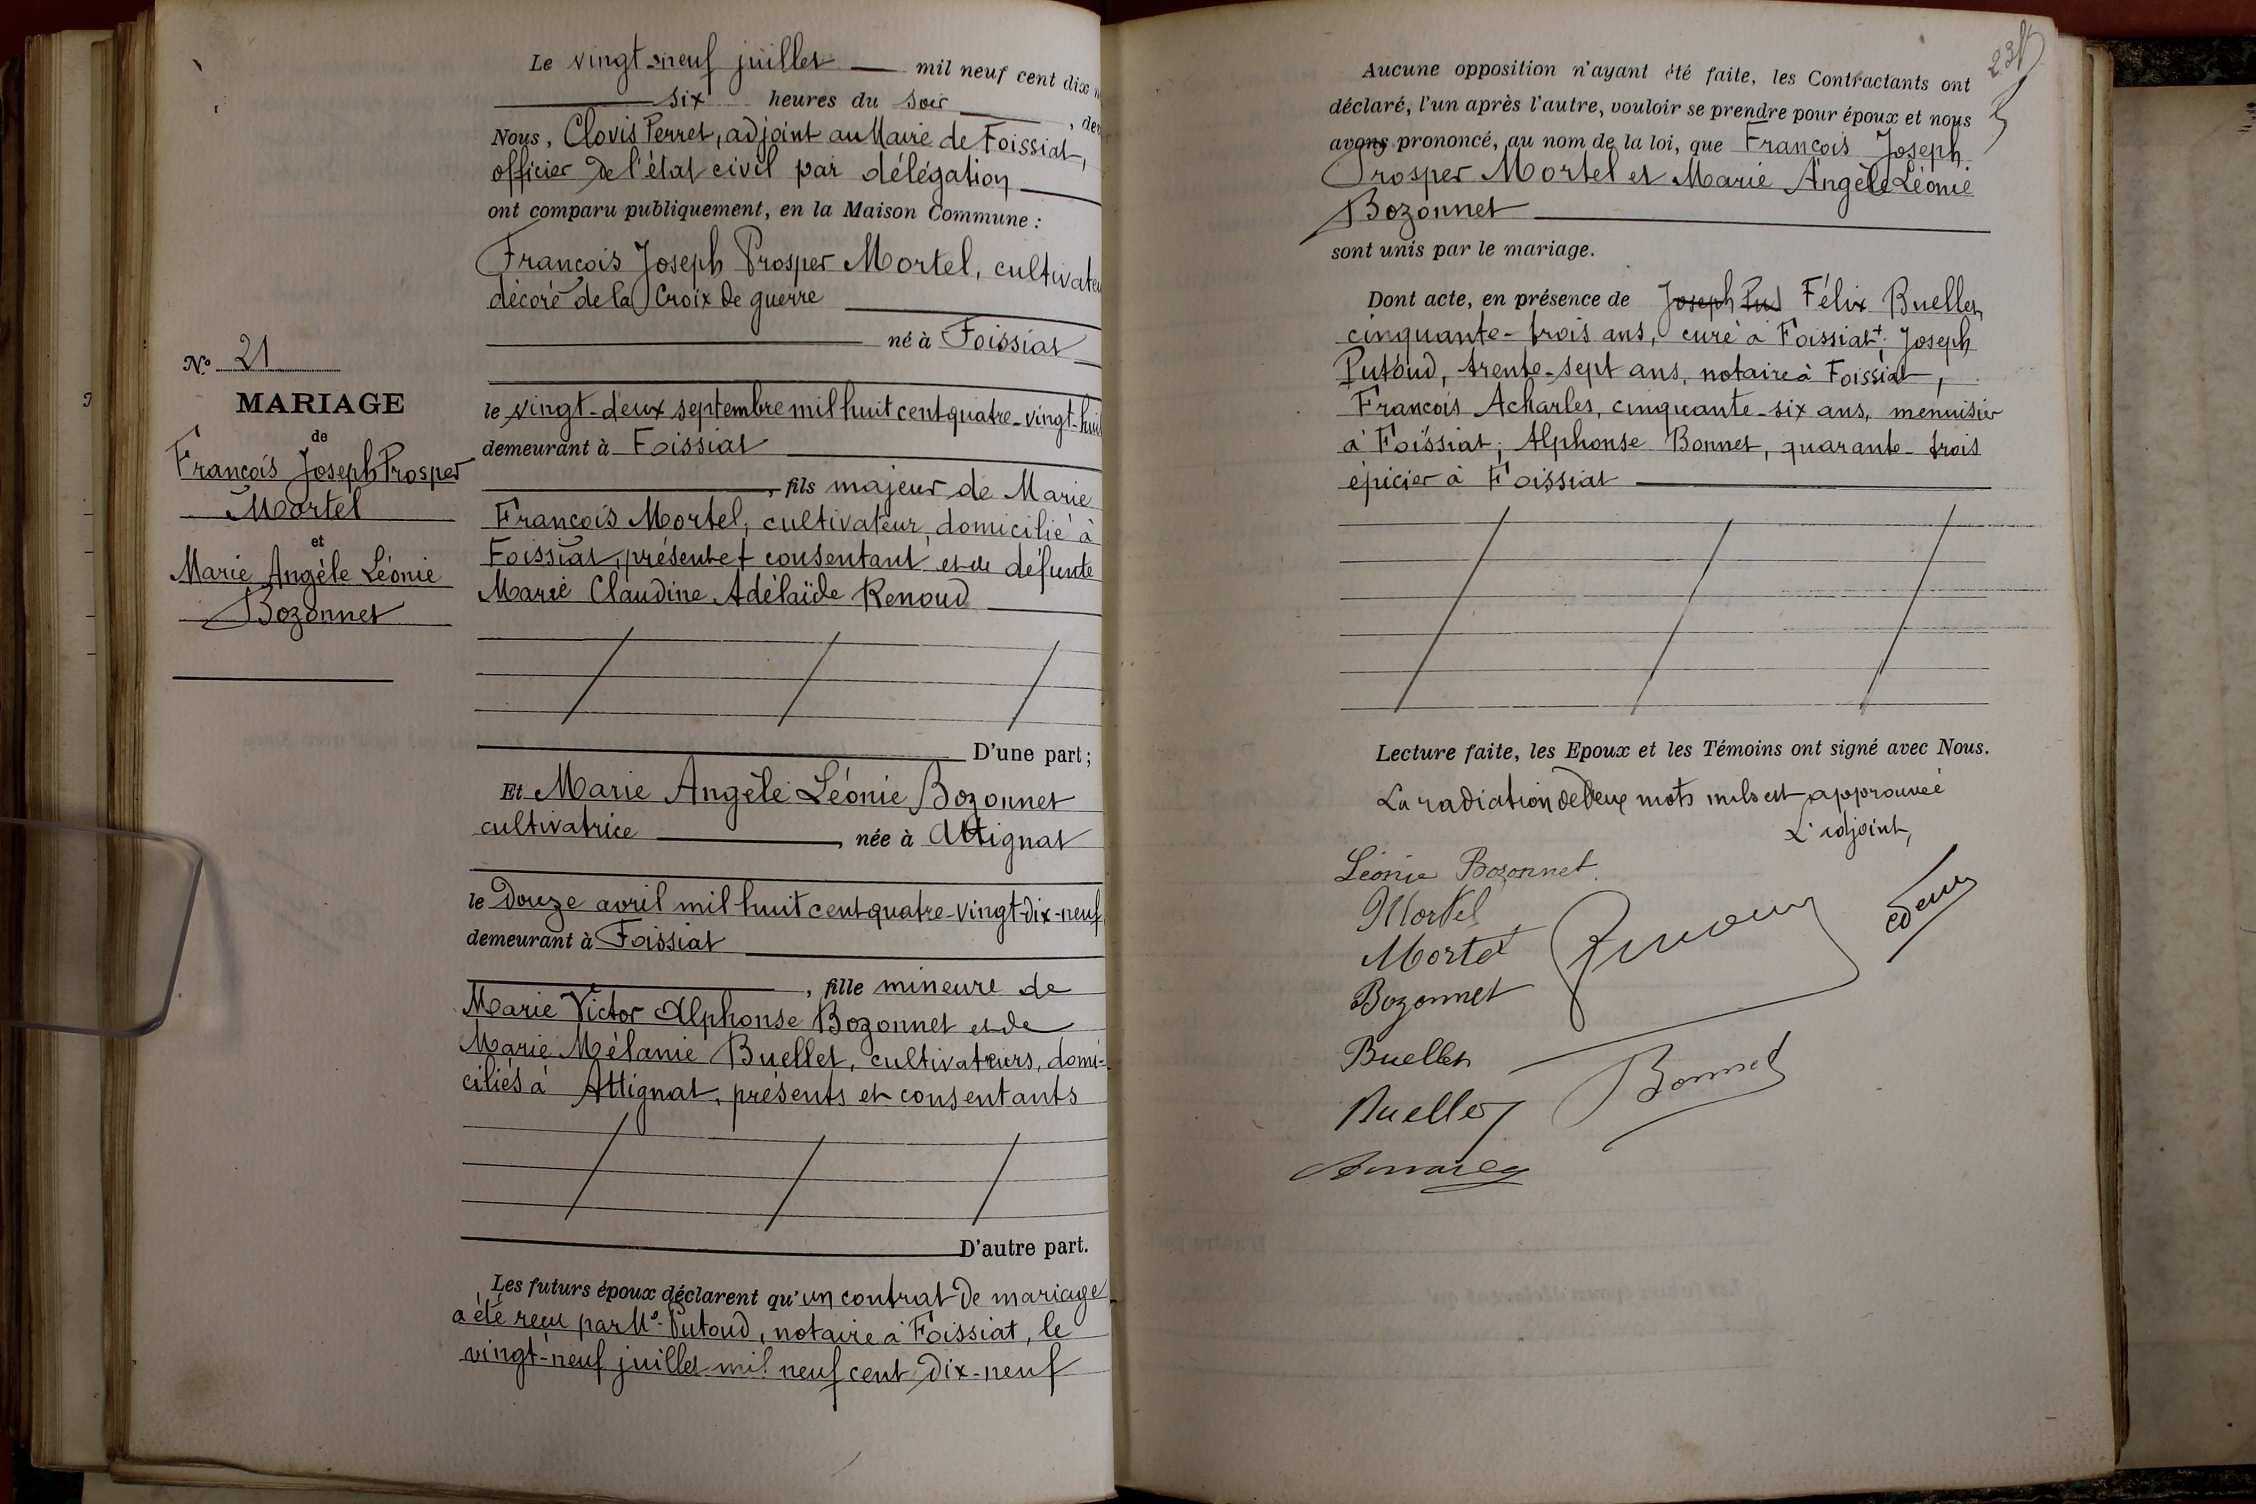 N.º 21
MARIAGE
de
François Joseph Prosper
Mortel
et
Marie Angèle Léonie
Bozonnet
Le vingt-neuf juillet mil neuf cent dix n
six heures du soir, dev
Nous, Clovis Perret, adjoint au Maire de Foissiat,
officier de l'état civil par délégation
ont comparu publiquement, en la Maison Commune :
François Joseph Prosper Mortel, cultivateu
décoré de la Croix de guerre
né à Foissiat
le vingt-deux septembre mil huit cent quatre-vingt-huit
demeurant à Foissiat
, fils majeur de Marie
François Mortel, cultivateur, domicilié à
Foissiat, présent et consentant et de défunte
Marie Claudine Adélaïde Renoud
D'une part ;
Et Marie Angèle Léonie Bozonnet
cultivatrice, née à Attignat
le douze avril mil huit cent quatre-vingt-dix-neuf
demeurant à Foissiat
, fille mineure de
Marie Victor Alphonse Bozonnet et de
Marie Mélanie Buellet, cultivateurs, domi-
ciliés à Attignat, présents et consentants
D'autre part.
Les futurs époux déclarent qu'un contrat de mariage
a été reçu par Me Putoud, notaire à Foissiat, le
vingt-neuf juillet mil neuf cent dix-neuf
Aucune opposition n'ayant été faite, les Contractants ont
déclaré, l'un après l'autre, vouloir se prendre pour époux et nous
avons prononcé, au nom de la loi, que François Joseph
Prosper Mortel et Marie Angèle Léonie
Bozonnet
sont unis par le mariage.
Dont acte, en présence de Joseph Put Félix Buellet,
cinquante-trois ans, curé à Foissiat, Joseph
Putoud, trente-sept ans, notaire à Foissiat,
François Acharles, cinquante-six ans, menuisier
à Foissiat, Alphonse Bonnet, quarante-trois
épicier à Foissiat
Lecture faite, les Epoux et les Témoins ont signé avec Nous.
La radiation de deux mots nuls est approuvée
L'adjoint,
Léonie Bozonnet.
Mortel
Mortel
Bozonnet
Buellet
Buellet
Bonnet